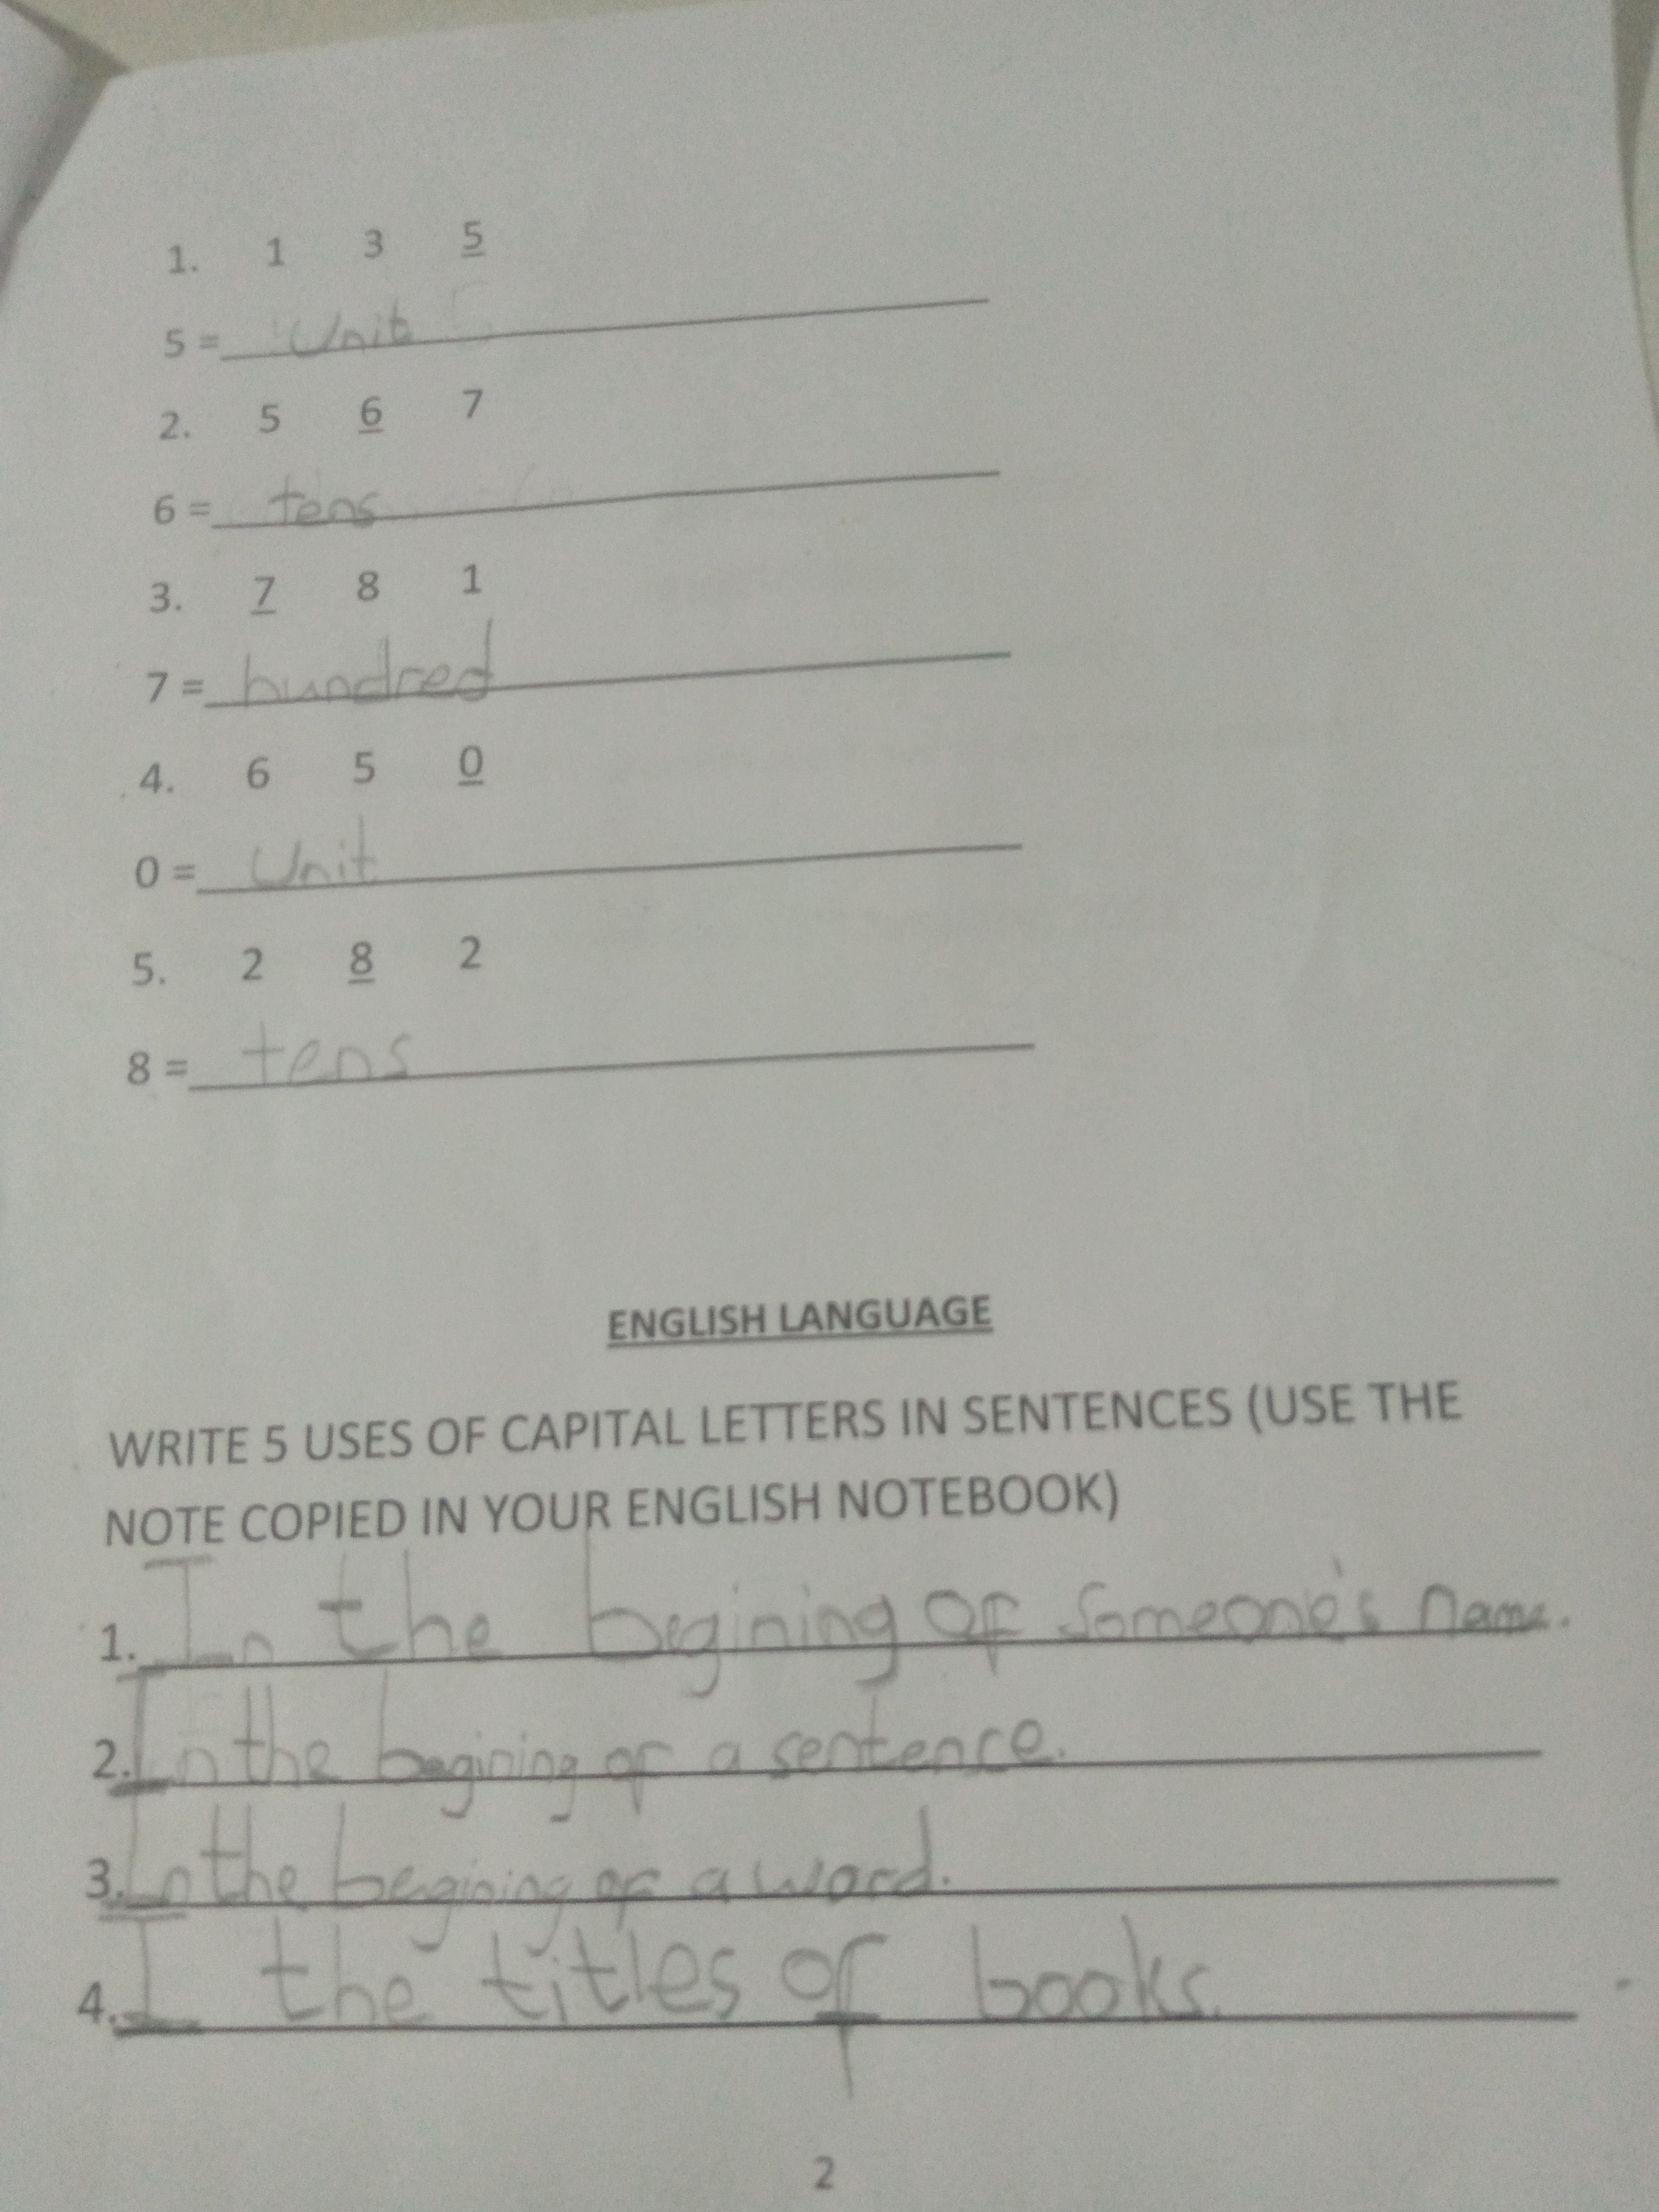 1. 1 3 5
5 = Unit
2. 5 6 7
6 = tens
3. 7 8 1
7 = hundred
4. 6 5 0
0 = Unit
5. 2 8 2
8 = tens
ENGLISH LANGUAGE
WRITE 5 USES OF CAPITAL LETTERS IN SENTENCES (USE THE
NOTE COPIED IN YOUR ENGLISH NOTEBOOK)
1. In the begining of Someone's name.
2. In the begining of a sentence.
3. In the begining of a word.
4. I the titles of books.
2